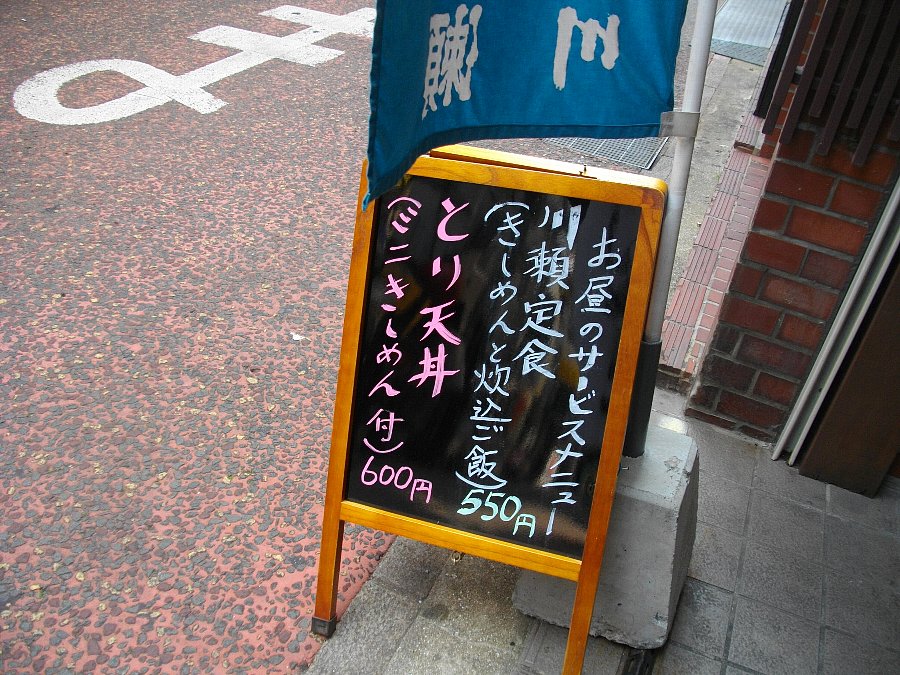 お昼のサービスメニュー
川瀬定食
(きしめんと炊込ご飯)
550円
とり天丼
(ミニきしめん付)
600円